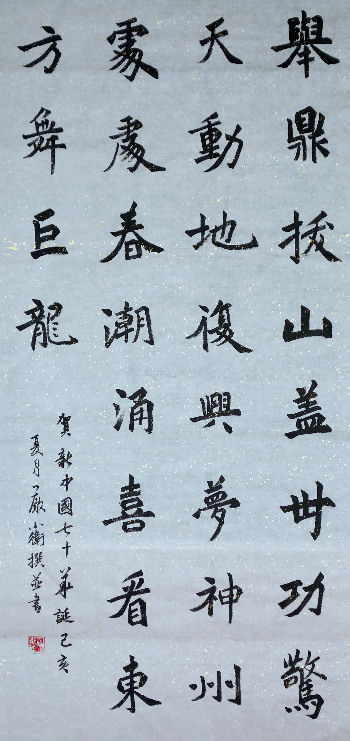 舉鼎拔山盖世功驚
天動地復興夢神州
處處春潮涌喜看東
方舞巨龍
賀新中國七十華誕己亥
夏月嚴衛撰並書